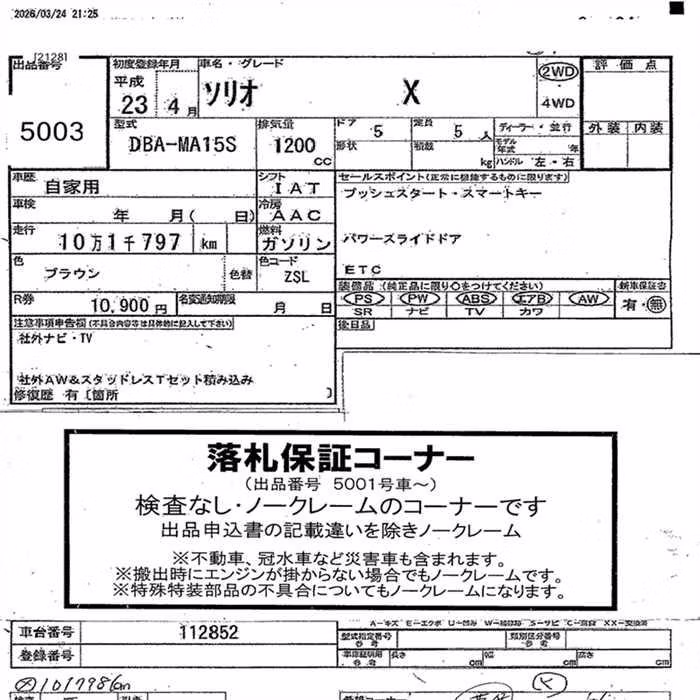 2026/03/24 21:25
[2128]
出品番号
5003
初度登録年月
平成
23 4月
車名・グレード
ソリオ X
2WD
4WD
評価点
外装 内装
型式
DBA-MA15S
排気量
1200
cc
ドア 5
定員 5 人
形状
積載 kg
ディーラー・並行
モデル年式 年
ハンドル 左・右
車歴
自家用
シフト
IAT
車検
年 月( 日)
冷房
AAC
走行
10万1千797 km
燃料
ガソリン
色
ブラウン
色替
色コード
ZSL
R券
10,900 円
名変通知期限
月 日
セールスポイント(正常に機能するものに限ります)
プッシュスタート・スマートキー
パワースライドドア
ETC
装備品(純正品に限り○をつけてください)
PS PW ABS エアB AW
SR ナビ TV カワ
新車保証書
有・無
後日品
注意事項申告欄(不具合内容等は具体的に記入して下さい)
社外ナビ・TV
社外AW&スタッドレスTセット積み込み
修復歴 有〔箇所 〕
落札保証コーナー
(出品番号 5001号車〜)
検査なし・ノークレームのコーナーです
出品申込書の記載違いを除きノークレーム
※不動車、冠水車など災害車も含まれます。
※搬出時にエンジンが掛からない場合でもノークレームです。
※特殊特装部品の不具合についてもノークレームになります。
車台番号
112852
登録番号
型式指定番号
参考
類別区分番号
参考
車庫証明用
参考
長さ cm
幅 cm
高さ cm
101798km